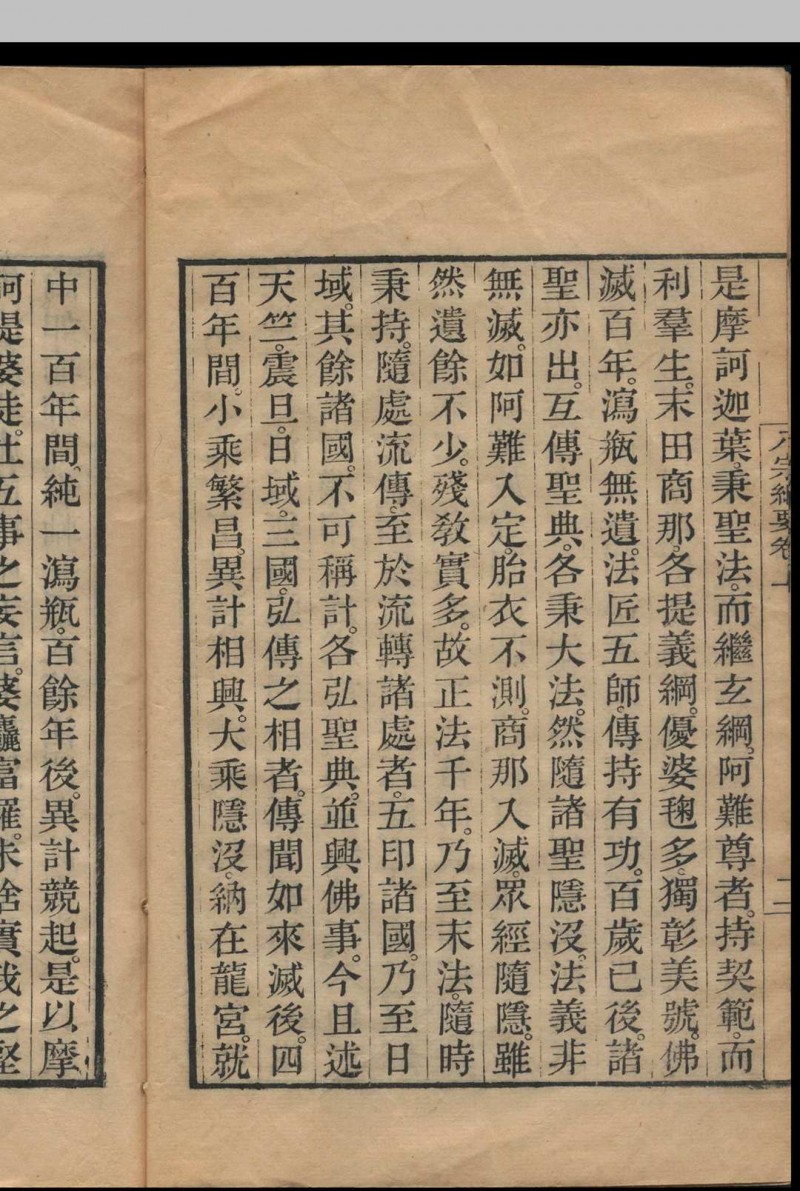 是摩訶迦葉。秉聖法。而繼玄綱。阿難尊者。持契範。而
利羣生。末田商那。各提義綱。優婆毱多。獨彰美號。佛
滅百年。瀉瓶無遺。法匠五師。傳持有功。百歲已後。諸
聖亦出。互傳聖典。各秉大法。然隨諸聖隱沒。法義非
無滅。如阿難入定。胎衣不測。商那入滅。眾經隨隱。雖
然遺餘不少。殘敎實多。故正法千年。乃至末法。隨時
秉持。隨處流傳。至於流轉諸處者。五印諸國。乃至日
域。其餘諸國。不可稱計。各弘聖典。並興佛事。今且述
天竺。震旦。日域。三國。弘傳之相者。傳聞如來滅後。四
百年間。小乘繁昌。異計相興。大乘隱沒。納在龍宮。就
中一百年間。純一瀉瓶。百餘年後。異計競起。是以摩